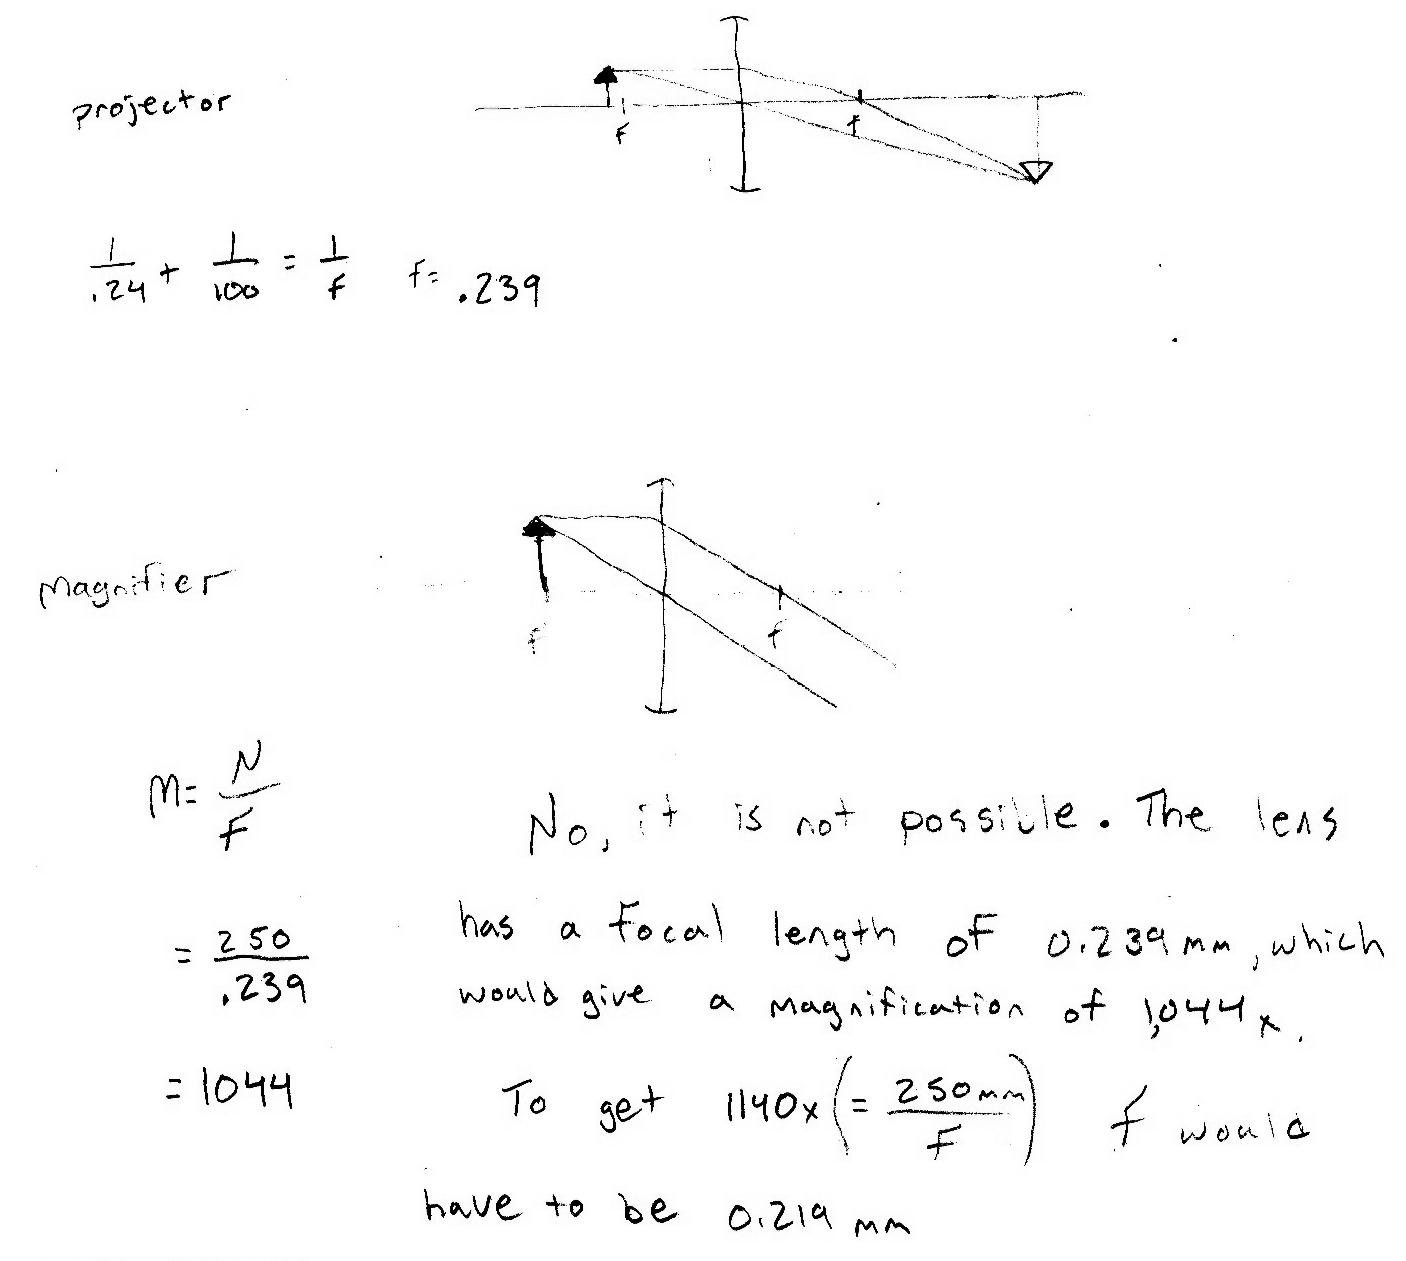 projector
F
f
1/.24 + 1/100 = 1/f f= .239
Magnifier
f
f
M= N/F
No, it is not possible. The lens
= 250/.239
has a focal length of 0.239 mm, which
would give a magnification of 1,044x.
= 1044
To get 1140x (= 250mm/F) f would
have to be 0.219 mm